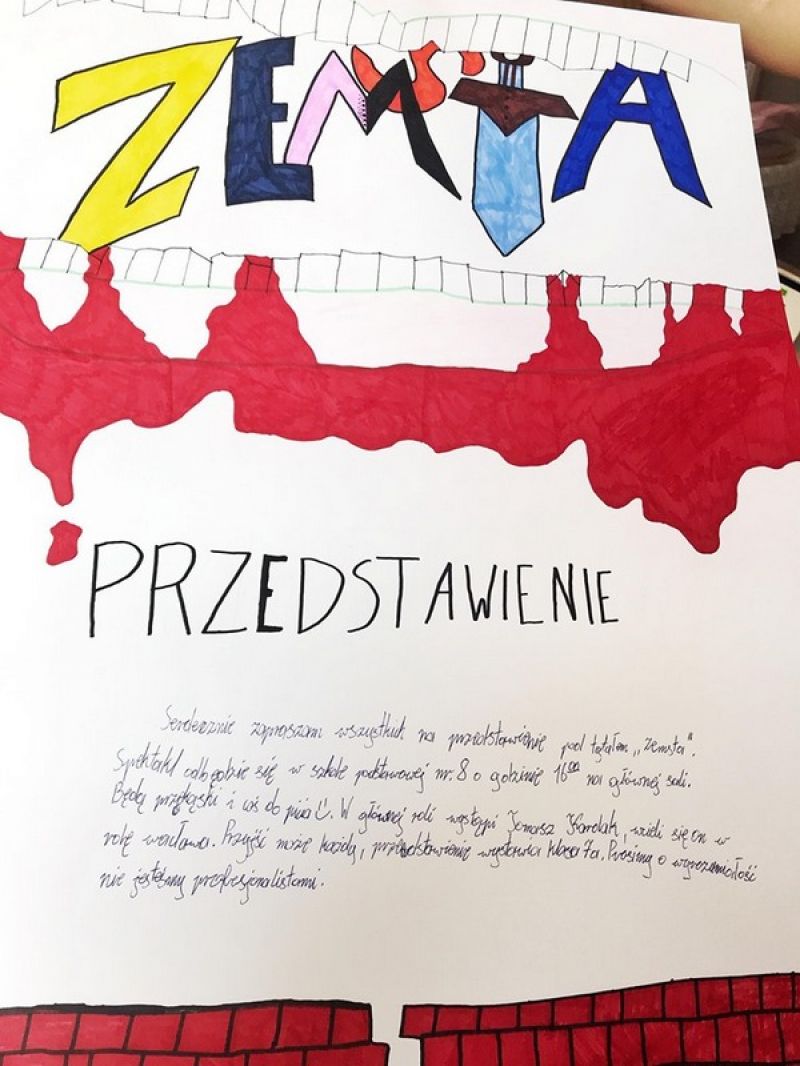 ZEMSTA
PRZEDSTAWIENIE
Serdecznie zapraszam wszystkich na przedstawienie pod tytułem „Zemsta".
Spektakl odbędzie się w szkole podstawowej nr. 8 o godzinie 16⁰⁰ na głównej sali.
Będą przekąski i coś do picia☺. W głównej roli wystąpi Tomasz Karolak, wcieli się on w
rolę wacława. Przyjść może każdy, przedstawienie wystawia klasa 7a. Prosimy o wyrozumiałość
nie jesteśmy profesjonalistami.